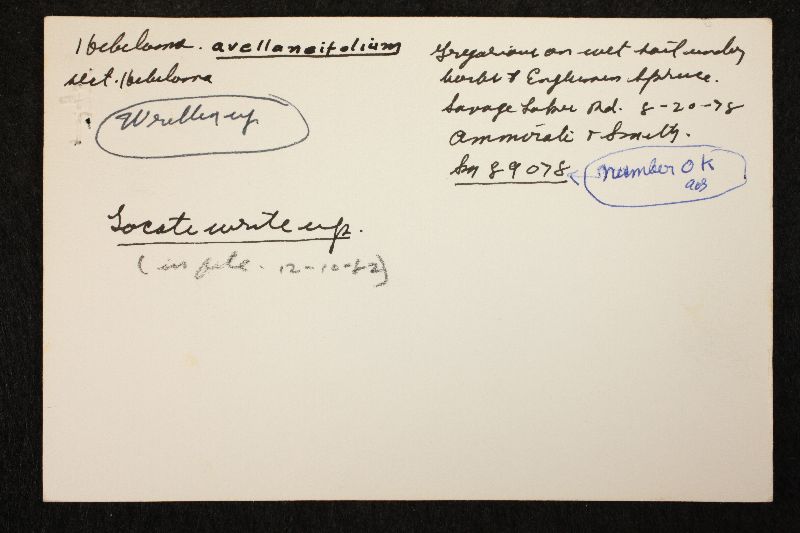 Hebeloma. avellaneifolium
sect. Hebeloma
Written up
Locate write up.
(in file. 12-10-82)
Gregarious on wet soil under
herbs & Englemann Spruce.
Savage Lakes Rd. 8-20-78
Ammirati & Smith.
Sm 89078
number OK